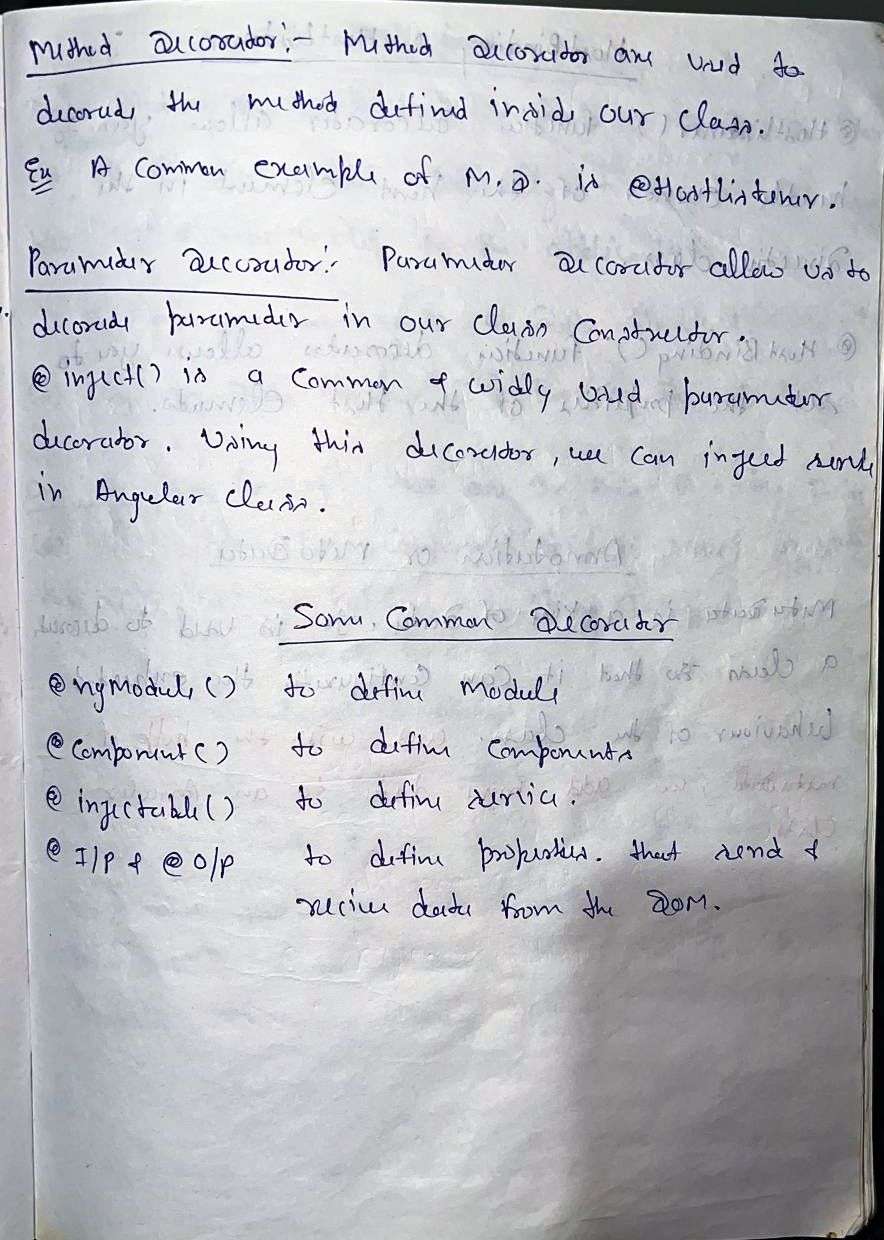 Method Decorator:- Method Decorator are used to
decorate the method defined inside our class.
Ex A common example of M.D. is @Hostlistener.
Parameter Decorator:- Parameter Decorator allow us to
decorate parameter in our class constructor.
@inject() is a common & widly used parameter
decorator. Using this decorator, we can inject
in Angular class.
Some Common Decorator
@ngModule() to define module
@Component() to define components
@injectable() to define service.
@I/P & @O/P to define properties. that send &
recive data from the DOM.